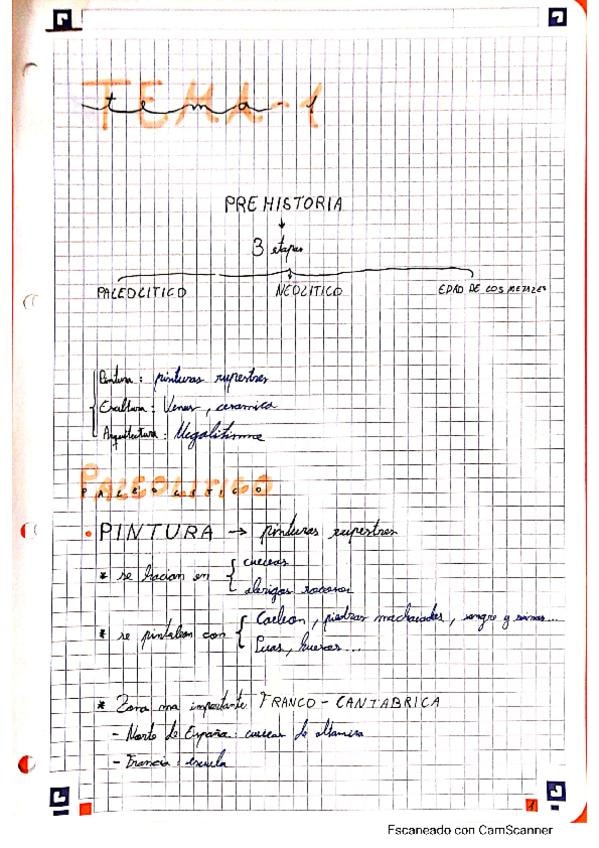 TEMA-1
tema-1
PREHISTORIA
3 etapas
PALEOLITICO NEOLITICO EDAD DE LOS METALES
Pintura: pinturas rupestres
Escultura: Venus, ceramica
Arquitectura: Megalitismo
PALEOLITICO
PALEOLITICO
• PINTURA → pinturas rupestres
* se hacian en { cuevas
abrigos rocosos
* se pintaban con { Carbon, piedras machacadas, sangre y
Puas, huesos...
* Zona mas importante FRANCO-CANTABRICA
- Norte de España: cuevas de altamira
- Francia:
1
Escaneado con CamScanner